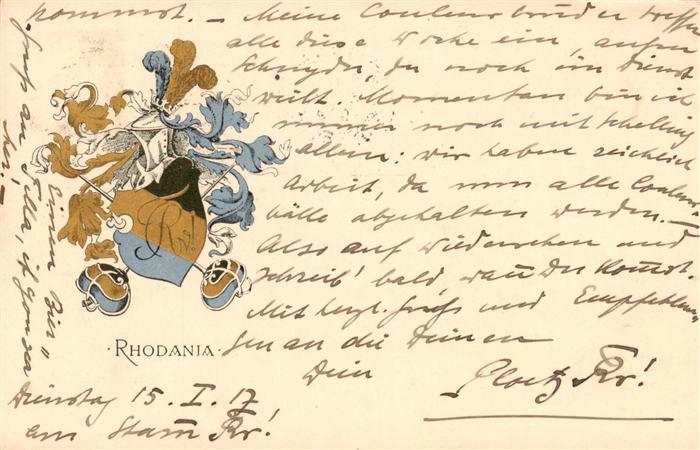 kommst. — Meine Couleurbrüder treffen
alle diese Woche ein, außer
Schnyder, der noch im Dienst
weilt. Momentan bin ich
immer noch mit Schelling
allein: wir haben reichlich
Arbeit, da nun alle Couleur
bälle abgehalten werden. —
Also auf Wiedersehen und
schreib' bald, wann Du kommst.
Mit herzl. Gruß und Empfehlun-
gen an die Deinen
Dein
RHODANIA
Dienstag 15. I. 17
am Stamm
Einen Bier
Gruß an Ella,